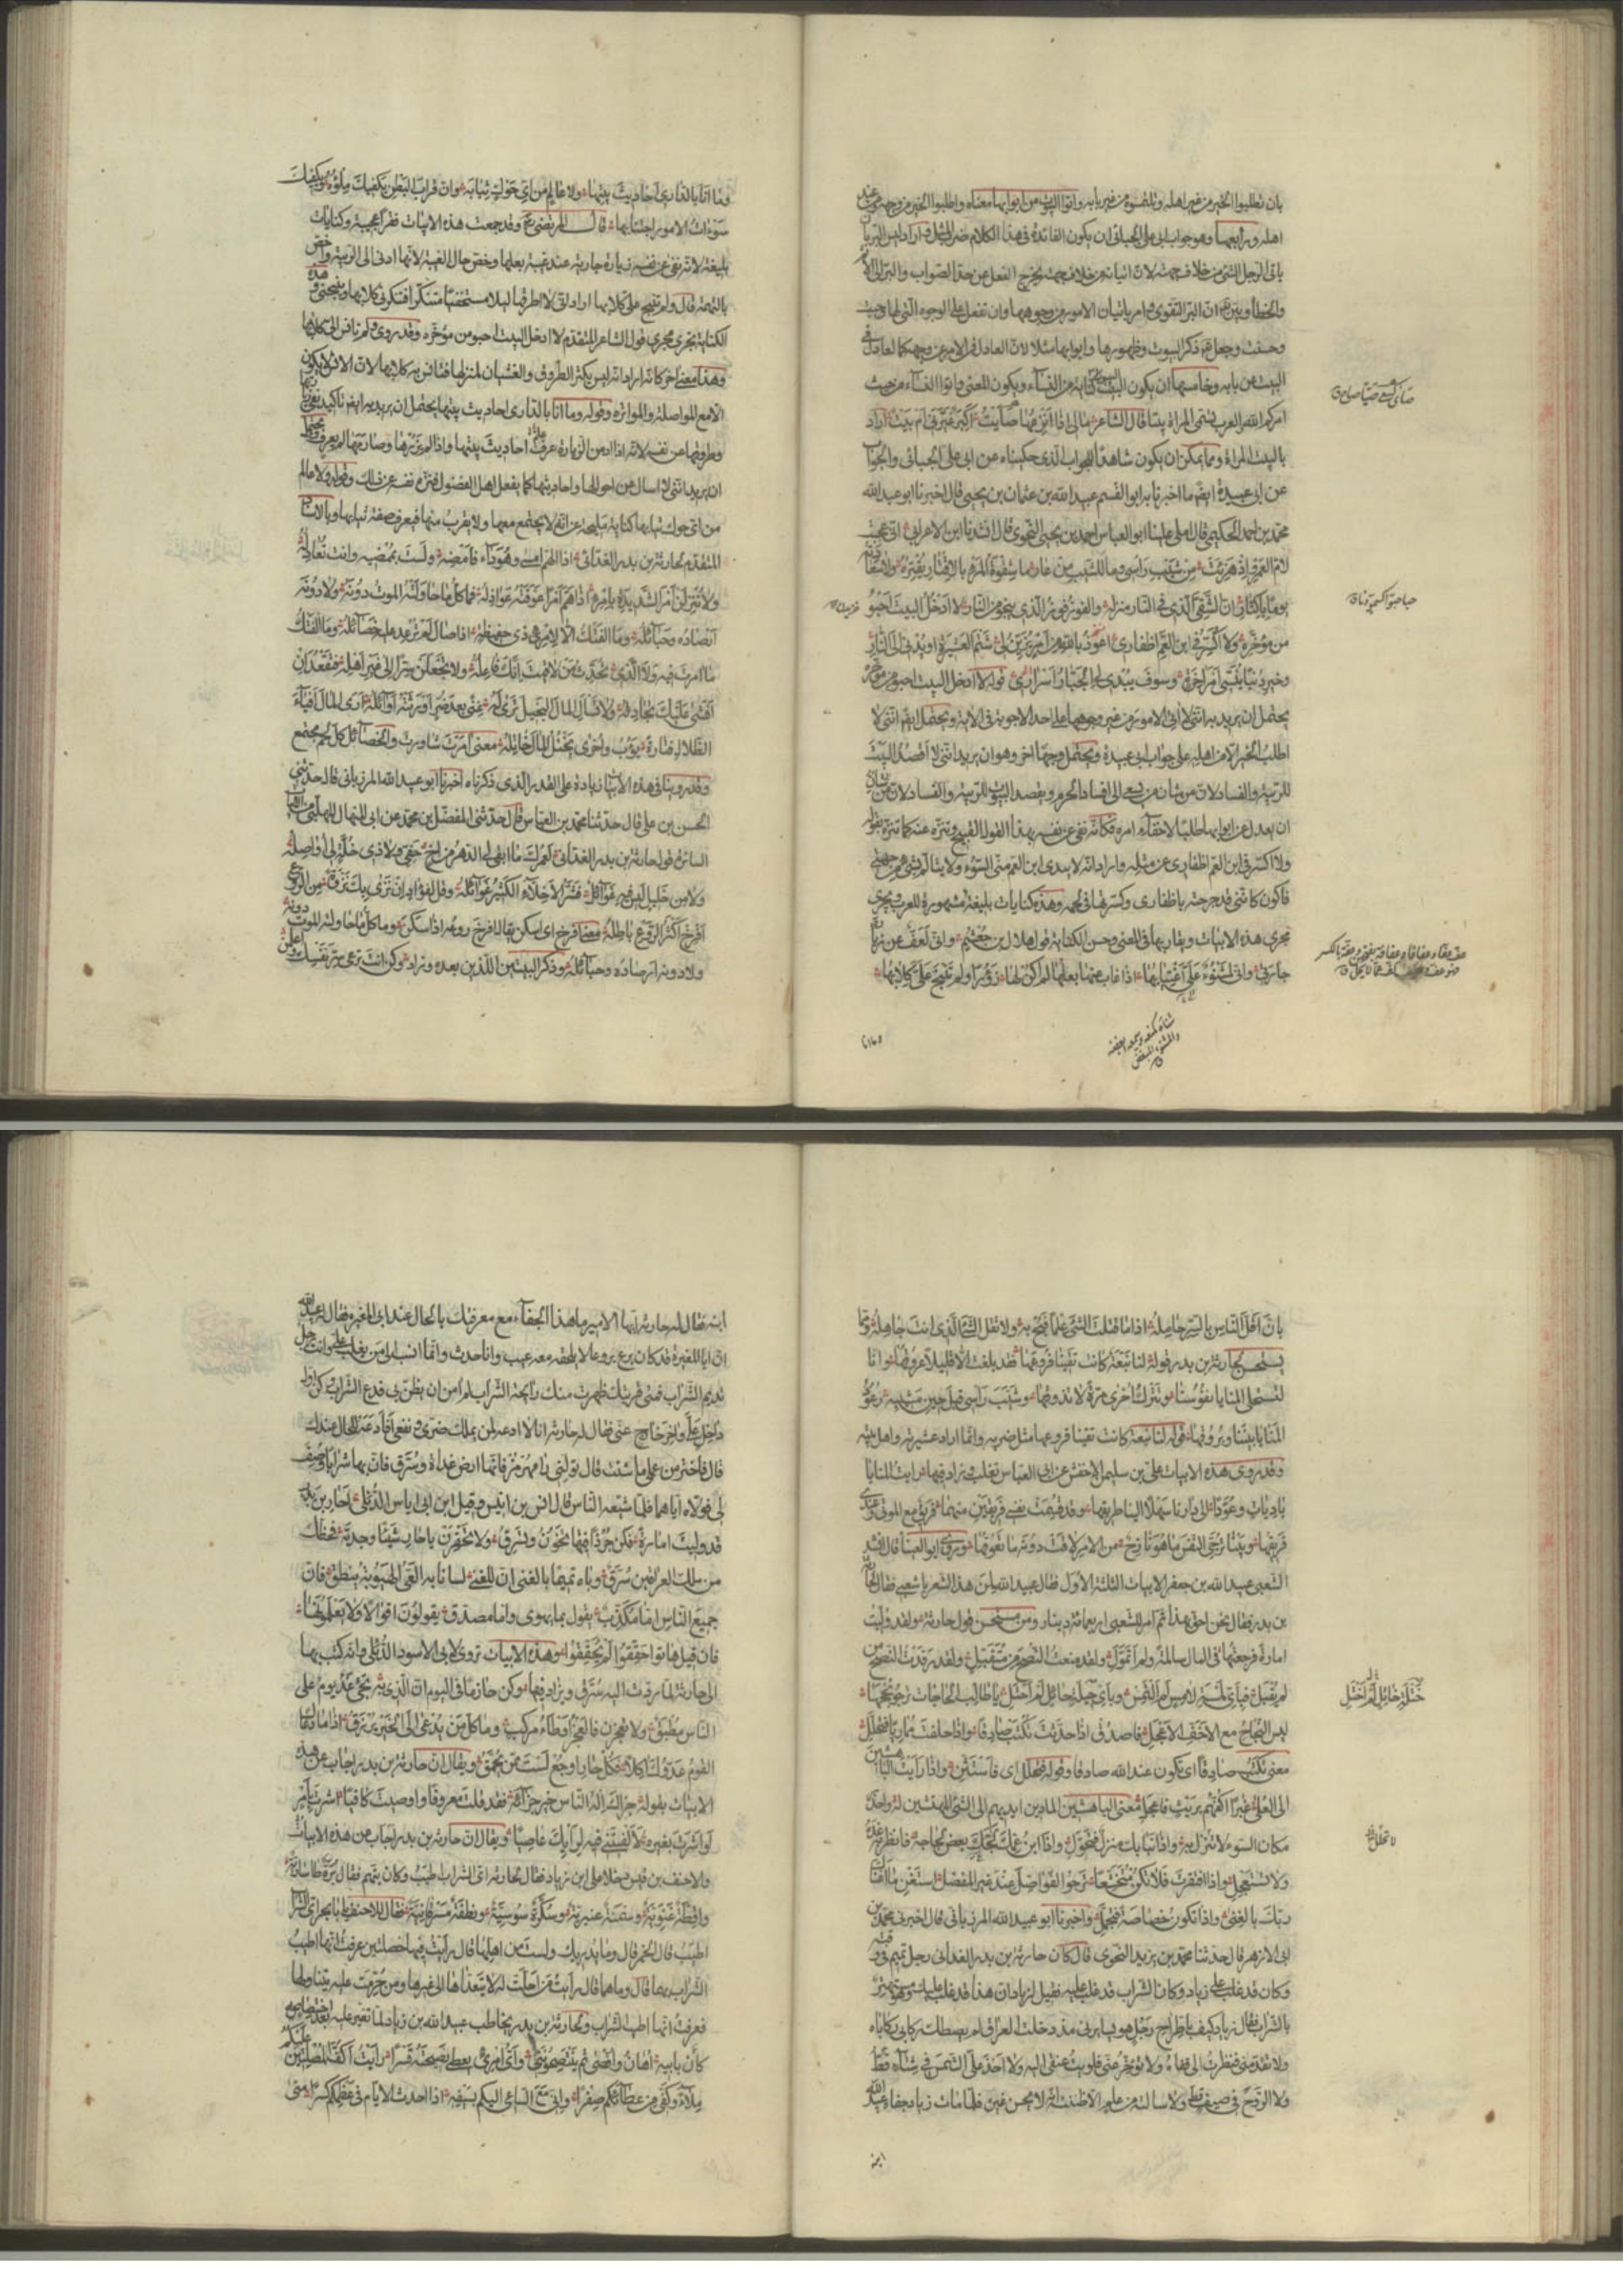 بان تطلبوا الخير من غير اهله وتلتمسوه من غير بابه واتوا البيوت من ابوابها معناه واطلبوا الخير من وجهه ومن عند
اهله ورابعها وهو جواب ابي علي الجبائي ان يكون الفائدة في هذا الكلام ضرب المثل واراد ليس البر بان
ياتي الرجل الشئ من خلاف جهته لان اتيانه من خلاف جهته يخرج الفعل عن حد الصواب والبر الى الاثم
والخطأ وبين ان البر التقوى وامر باتيان الامور من وجوهها وان تفعل على الوجوه التي لها وجبت
وحسنت وجعل ذكر البيوت وظهورها وابوابها مثلا لان العادل في الامر عن وجهه كالعادل في
البيت عن بابه وخامسها ان يكون البيوت كناية عن النساء ويكون المعنى واتوا النساء من حيث
امركم الله والعرب تسمى المراة بيتا قال الشاعر مالى اذا انزعها صايت اكبر غيرني ام بيت اراد
بالبيت المراة ومما يمكن ان يكون شاهدا للجواب الذى حكيناه عن ابى على الجبائى والجواب
عن ابى عبيدة ايضا ما اخبرنا به ابو القسم عبيد الله بن عثمان بن يحيى قال اخبرنا ابو عبد الله
محمد بن احمد الحكيمى قال املى علينا ابو العباس احمد بن يحيى النحوى قال انشدنا ابن الاعرابى انى عجبت
لام العمر اذ هزئت من شيب راسى وما بالشيب من عار ما شقوة المرء بالاقتار يقتره ولا سعادته
يوما باكثار ان الشقى الذى فى النار منزله والفوز فوز الذى ينجو من النار لا ادخل البيت احبو
من مؤخره ولا اكسر فى ابن العم اظفارى اعوذ بالله من امر يزين لى شتم العشيرة او يدنى الى النار
وخير دنيا ينسى امر اخرة وسوف يبدى لى الجبار اسرارى قوله لا ادخل البيت احبو من مؤخره
يحتمل ان يريد به اننى لا اتى الامور من غير وجوهها على احد الاجوبة فى الاية ويحتمل ايضا اننى لا
اطلب الخير الا من اهله على جواب ابى عبيدة ويحتمل وجها اخر وهو ان يريد اننى لا اقصد البيت
للريبة والفساد لان من شان من يسعى الى افساد الحرم ويقصد البيوت للريبة والفساد
ان يعدل عن ابوابها طلبا لاخفاء امره فكانه نفى عن نفسه بهذا القول القبيح وتنزه عنه كما تنزه بقوله
ولا اكسر فى ابن العم اظفارى عن مثله واراد انه لا يندى ابن العم منى السوء ولا يتالم بشئ من جهتى
فاكون كاننى قد جرحته باظفارى وكسرتها فى لحمه وهذه كنايات بليغة مشهورة للعرب ويجرى
مجرى هذه الابيات ويقاربها فى المعنى وحسن الكناية قول هلال بن خثعم وانى لعف عن زيارة
جارتى وانى لمشنوء على اغتيابها اذا غاب عنها بعلها لم اكن لها زؤرا ولم تنبح على كلابها
وما انا
وما انا بالدارى احاديث بيتها ولا عالم من اى حوك ثيابها وان قراب البطن يكفيك ملؤه ويكفيك
سوءات الامور اجتنابها قال المرتضى وقد جمعت هذه الابيات فقرا عجيبة وكنايات
بليغة لانه نفى عن نفسه زيارة جارته عند غيبة بعلها وخص حال الغيبة لانها ادنى الى الريبة واخص
بالتهمة فقال ولم تنبح على كلابها اراد انى لا اطرقها ليلا مستخفيا متنكرا فتنكرنى كلابها وتنبحنى وهذه
الكناية تجرى مجرى قول الشاعر المتقدم لا ادخل البيت احبو من مؤخره وقد روى ولم تانس الى كلابها
وهذا معنى اخر كانه اراد انه ليس يكثر الطروق والغشيان لمنزلها فتانس به كلابها لان الانس لا يكون
الا مع المواصلة والمواترة وقوله وما انا بالدارى احاديث بيتها يحتمل ان يريد به ايضا تاكيد نفى زيارتها
وطروقها عن نفسه لانه اذا ادمن الزيارة عرف احاديث بيتها واذا لم يزرها وصارمها لم يعرف ويحتمل
ان يريد اننى لا اسال عن احوالها واحاديثها كما يفعل اهل الفضول فنزه نفسه عن ذلك وقوله ولا عالم
من اى حوك ثيابها كناية مليحة عن انه لا يجتمع معها ولا يقرب منها فيعرف صفة ثيابها وبالاسناد
المتقدم لحارثة بن بدر الغدانى اذا الهم امسى وهو داء فامضه ولست بممضيه وانت تعادله
ولا تنزلن امر الشديدة بامرئ اذا هم امرا عوقته عواذله فما كل ما حاولته الموت دونه ولا دونه
ارصاده وحبائله وما الفتك الا لامرئ ذى حفيظة اذا صال لم ترعد عليه خصائله وما الفتك
ما امرت فيه ولا الذى تحدث من لاقيت انك فاعله ولا تجعلن سرا الى غير اهله فتقعد ان
افشى عليك تجادله ولا تسال المال البخيل ترى له غنى بعد ضر اورثته اوائله ارى المال افياء
الظلال فتارة يؤوب واخرى يختل المال خاتله معنى امرت شاورت والخصائل كل لحم مجتمع
وقد روينا فى هذه الابيات زيادة على القدر الذى ذكرناه اخبرنا ابو عبيد الله المرزبانى قال حدثنى
الحسن بن على قال حدثنا محمد بن العباس قال حدثنى المفضل بن محمد عن ابى المنهال المهلبى
السائر قول حارثة بن بدر الغدانى لعمرك ما ابقى لى الدهر من اخ حفى ولا ذى خلة لى اواصله
ولا من خليل ليس فيه غوائل فشر الاخلاء الكثير غوائله وقل لفؤاد ان نزى بك نزوة من الروع
افرخ اكثر الروع باطله معنى افرخ اى اسكن يقال افرخ روعه اذا سكن وما كل ما حاولته الموت دونه
ولا دونه ارصاده وحبائله وذكر البيتين اللذين بعده وزاد وكن انت ترعى سر نفسك واعلمن
بان اقل الناس بالسر حامله اذا ما قتلت الشئ علما فبح به ولا تقل الشئ الذى انت جاهله ومما
يستحسن لحارثة بن بدر قوله لنا نبعة كانت تقينا فروعها فقد بلغت الا قليلا عروقها وانا
لتستحلى المنايا نفوسنا ونترك اخرى مرة لا نذوقها وشيب راسى قبل حين مشيبه رعود
المنايا بيننا وبروقها قوله لنا نبعة كانت تقينا فروعها مثل ضربه وانما اراد عشيرته واهل بيته
وقد روى هذه الابيات على بن سليمان الاخفش عن ابى العباس ثعلب وزاد فيها رايت المنايا
باديات وعودا الى دارنا سهلا الينا طريقها وقد قسمت نفسى فريقين منهما فريق مع الموتى وعندى
فريقها وبينا نرجى النفس ما هو نازح من الامر لاقت دونه ما يعوقها وروى ابو العباس قال انشد
الشعبى عبيد الله بن جعفر الابيات الثلثة الاول فقال عبيد الله لمن هذا الشعر يا شعبى فقال لحارثة
بن بدر فقال نحن احق بهذا ثم امر للشعبى باربعمائة دينار ومن مستحسن قول حارثة ولقد وليت
امارة فرجعتها فى المال سالمة ولم اتمول ولقد منعت النصح من متقبل ولقد رفدت النصح من
لم يقبل فباى لمسة لامس لم التمس وباى حيلة حائل لم احتل يا طالب الحاجات يرجو نجحها
ليس النجاح مع الاخف الاعجل فاصدق اذا حدثت تكتب صادقا واذا حلفت مماريا فتحلل
معنى تكتب صادقا اى تكون عند الله صادقا وقوله فتحلل اى فاستثن واذا رايت الباهشين
الى العلى غبرا اكفهم بريث فاعجل معنى الباهشين المادين ايديهم الى الشئ المهتشين له واحذر
مكان السوء لا تنزل به واذا نبا بك منزل فتحول واذا ابن عمك لج بعض لجاجه فانظر به غده
ولا تستعجل واذا افتقرت فلا تكن متخشعا ترجو الفواضل عند غير المفضل استغن ما اغناك
ربك بالغنى واذا تكون خصاصة فتجمل واخبرنا ابو عبيد الله المرزبانى قال اخبرنى محمد بن
ابى الازهر قال حدثنا محمد بن يزيد النحوى قال كان حارثة بن بدر الغدانى رجل تميم فى وقته
وكان قد غلب على زياد وكان الشراب قد غلب عليه فقيل لزياد ان هذا قد غلب عليك وهو مستهتر
بالشراب فقال زياد كيف باطراح رجل هو يسايرنى مذ دخلت العراق لم يصطك ركابى ركاباه
ولا تقدمنى فنظرت الى قفاه ولا تاخر عنى فلويت عنقى اليه ولا اخذ على الشمس فى شتاء قط
ولا الروح فى صيف قط ولا سالته عن علم الا ظننته انه لا يحسن غيره فلما مات زياد جفاه عبيد الله
ابنه
ابنه فقال له حارثة ايها الامير ما هذا الجفاء مع معرفتك بالحال عند ابى المغيرة فقال له عبيد الله
ان ابا المغيرة قد كان برع بروعا لا يلحقه معه عيب وانا حدث وانما انسب الى من يغلب على وانت رجل
تديم الشراب فمتى قربتك ظهرت منك رائحة الشراب لم امن ان يظن بى فدع الشراب وكن اول
داخل على واخر خارج عنى فقال له حارثة انا لا ادعه لمن يملك ضرى ونفعى افادعه للحال عندك
قال فاختر من عملى ما شئت قال تولينى رامهرمز فانها ارض عذاة وسرق فان بها شرابا وصف
لى فولاه اياهما فلما شيعه الناس قال انس بن ابى انيس وقيل ابن ابى اياس الدئلى احار بن بدر
قد وليت امارة فكن جرذا فيها تخون وتسرق ولا تحقرن يا حار شيئا وجدته فحظك
من ملك العراقين سرق وباه تميما بالغنى ان للغنى لسانا به المرء الهيوبة ينطق فان
جميع الناس اما مكذب يقول بما يهوى واما مصدق يقولون اقوالا ولا يعلمونها
فان قيل هاتوا حققوا لم يحققوا وهذه الابيات تروى لابى الاسود الدئلى وانه كتب بها
الى حارثة لما رفدت اليه سرق وزاد فيها وكن حازما فى اليوم ان الذى به يجئ غد يوم على
الناس مطبق ولا تعجزن فالعجز اوطاء مركب وما كل من يدعى الى الخير يرزق اذا ما دعاك
القوم عدوك اكلا فكل حار او جع لست ممن يحمق ويقال ان حارثة بن بدر اجاب عن هذه
الابيات بقوله جزاك اله الناس خير جزائه فقد قلت معروفا واوصيت كافيا اشرت بامر
لو اشرت بغيره لالفيتنى فيه لرايك عاصيا ويقال ان حارثة بن بدر اجاب عن هذه الابيات
والاحنف بن قيس دخلا على ابن زياد فقال لحارثة اى الشراب اطيب وكان يتهم فقال برة طاسارية
واقطة غنوية وسمنة عنبرية وسكرة سوسية ونطفة مسرقانية فقال للاحنف يا با بحر اى الشراب
اطيب قال الخمر قال وما يدريك ولست من اهلها قال رايت فيها خصلتين عرفت انها اطيب
الشراب بهما قال وما هما قال رايت من احلت له لا يتعداها الى غيرها ومن حرمت عليه يتناولها
فعرفت انها اطيب الشراب ولحارثة بن بدر يخاطب عبيد الله بن زياد لما تغير عليه بعد اختصاصه
كان بابيه اهان واقصى ثم ينتصحوننى واى امرئ يعطى نصيحته قسرا رايت اكف المصلتين عليكم
ملاء وكفى من عطائكم صفرا وانى مع الساعى اليكم بسيفه اذا احدث الايام فى عظمكم كسرا متى